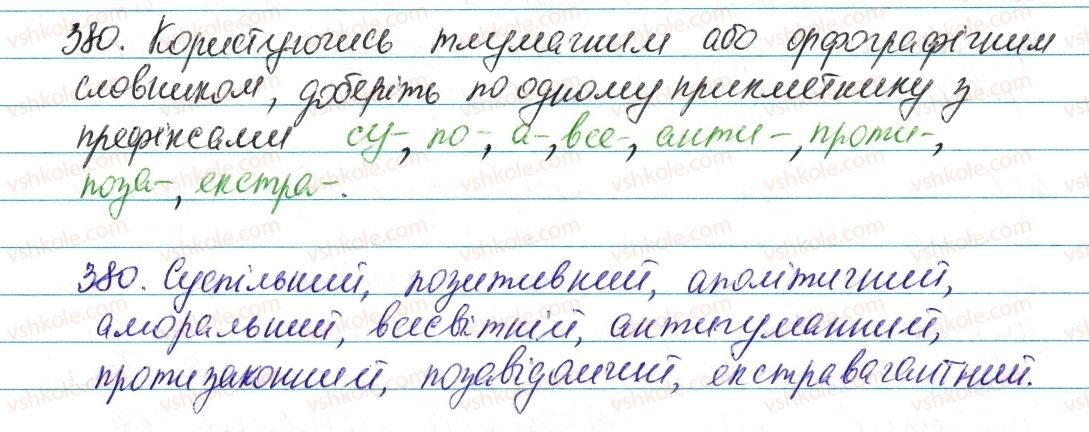 380. Користуючись тлумачним або орфографічним
словником, доберіть по одному прикметнику з
префіксами су-, по-, а-, все-, анти-, проти-,
поза-, екстра-.
380. Суспільний, позитивний, аполітичний,
аморальний, всесвітній, антигуманний,
протизаконний, позавідомчий, екстравагантний.